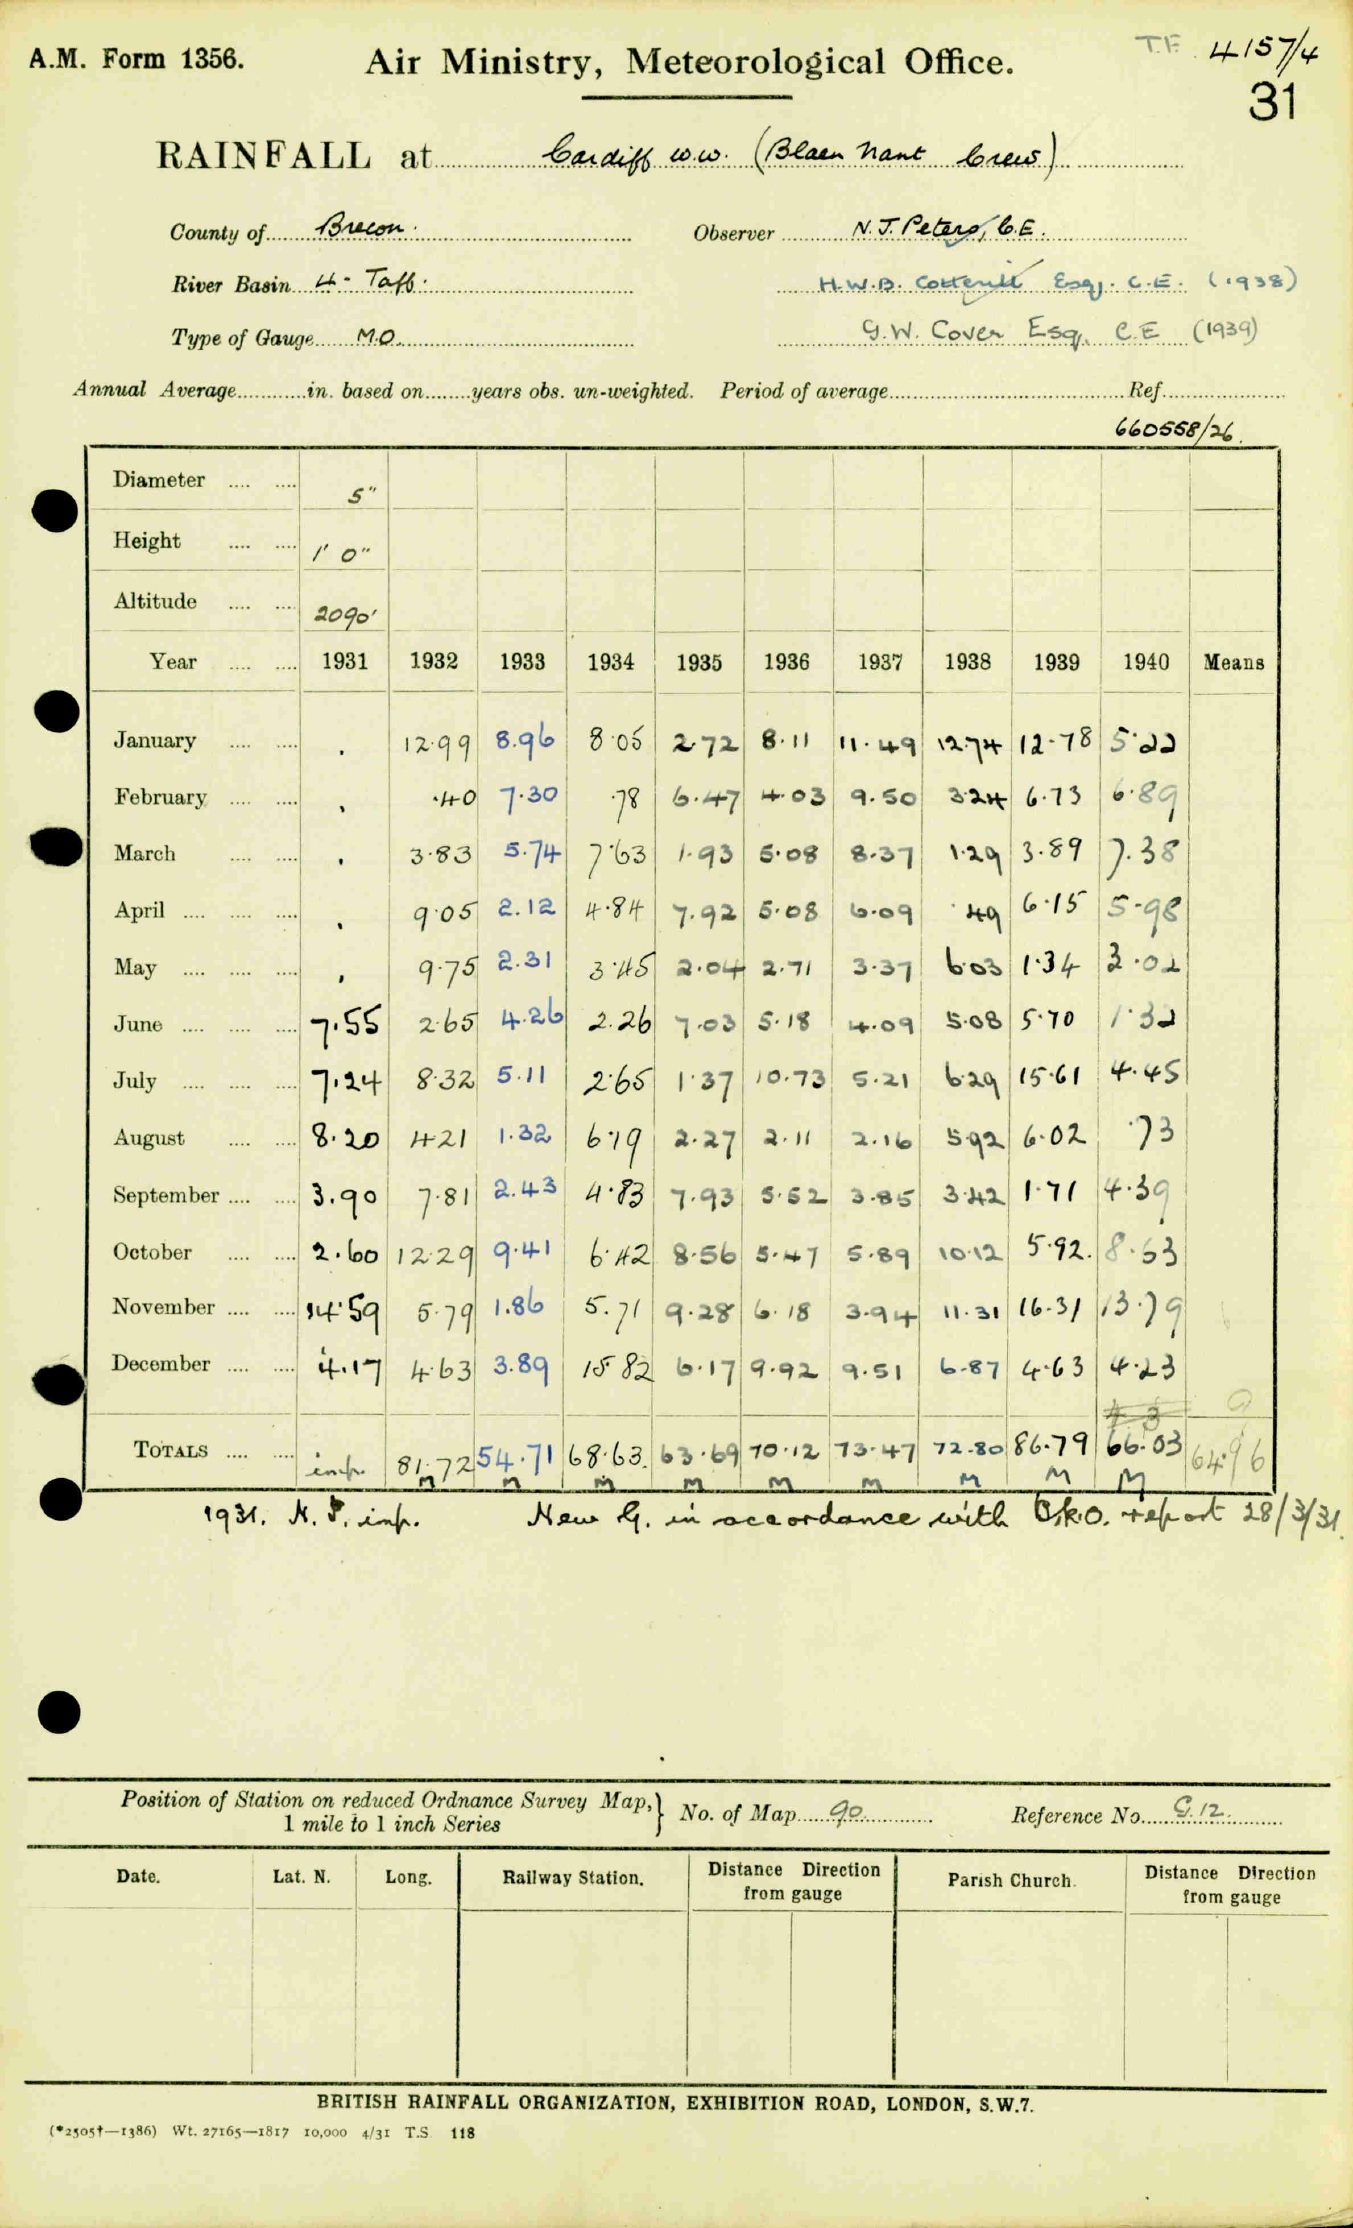 A.M. Form 1356.
Air Ministry, Meteorological Office.
T.F. 4157/4
31
RAINFALL at Cardiff W.W. (Blaen Nant Crew)
County of Brecon. Observer N. J. Peters, C.E.
River Basin 4 - Taff. H.W.B. Cotterill Esq. C.E. (1938)
Type of Gauge M.O. G.W. Cover Esq. C.E (1939)
Annual Average in. based on years obs. un-weighted. Period of average Ref.
660558/26.
Diameter .... .... 5"
Height .... .... 1' 0"
Altitude .... .... 2090'
Year .... .... 1931 1932 1933 1934 1935 1936 1937 1938 1939 1940 Means
January .... .... . 12.99 8.96 8.05 2.72 8.11 11.49 12.74 12.78 5.22
February .... .... . .40 7.30 .78 6.47 4.03 9.50 3.24 6.73 6.89
March .... .... . 3.83 5.74 7.63 1.93 5.08 8.37 1.29 3.89 7.38
April .... .... .... . 9.05 2.12 4.84 7.92 5.08 6.09 .49 6.15 5.98
May .... .... .... . 9.75 2.31 3.45 2.04 2.71 3.37 6.03 1.34 3.02
June .... .... .... 7.55 2.65 4.26 2.26 7.03 5.18 4.09 5.08 5.70 1.32
July .... .... .... 7.24 8.32 5.11 2.65 1.37 10.73 5.21 6.29 15.61 4.45
August .... .... 8.20 4.21 1.32 6.19 2.27 2.11 2.16 5.92 6.02 .73
September .... .... 3.90 7.81 2.43 4.83 7.93 5.52 3.85 3.42 1.71 4.39
October .... .... 2.60 12.29 9.41 6.42 8.56 5.47 5.89 10.12 5.92. 8.63
November .... .... 14.59 5.79 1.86 5.71 9.28 6.18 3.94 11.31 16.31 13.79
December .... .... 4.17 4.63 3.89 15.82 6.17 9.92 9.51 6.87 4.63 4.23
TOTALS .... .... inp. 81.72 54.71 68.63. 63.69 70.12 73.47 72.80 86.79 66.03
M M M M M M M M M
1931. N. P. inp. New G. in accordance with B.R.O. report 28/3/31.
Position of Station on reduced Ordnance Survey Map,
1 mile to 1 inch Series
No. of Map 90. Reference No. G.12.
Date. Lat. N. Long. Railway Station. Distance Direction Parish Church. Distance Direction
from gauge from gauge
BRITISH RAINFALL ORGANIZATION, EXHIBITION ROAD, LONDON, S.W.7.
(*2505†—1386) Wt. 27165—1817 10,000 4/31 T.S. 118